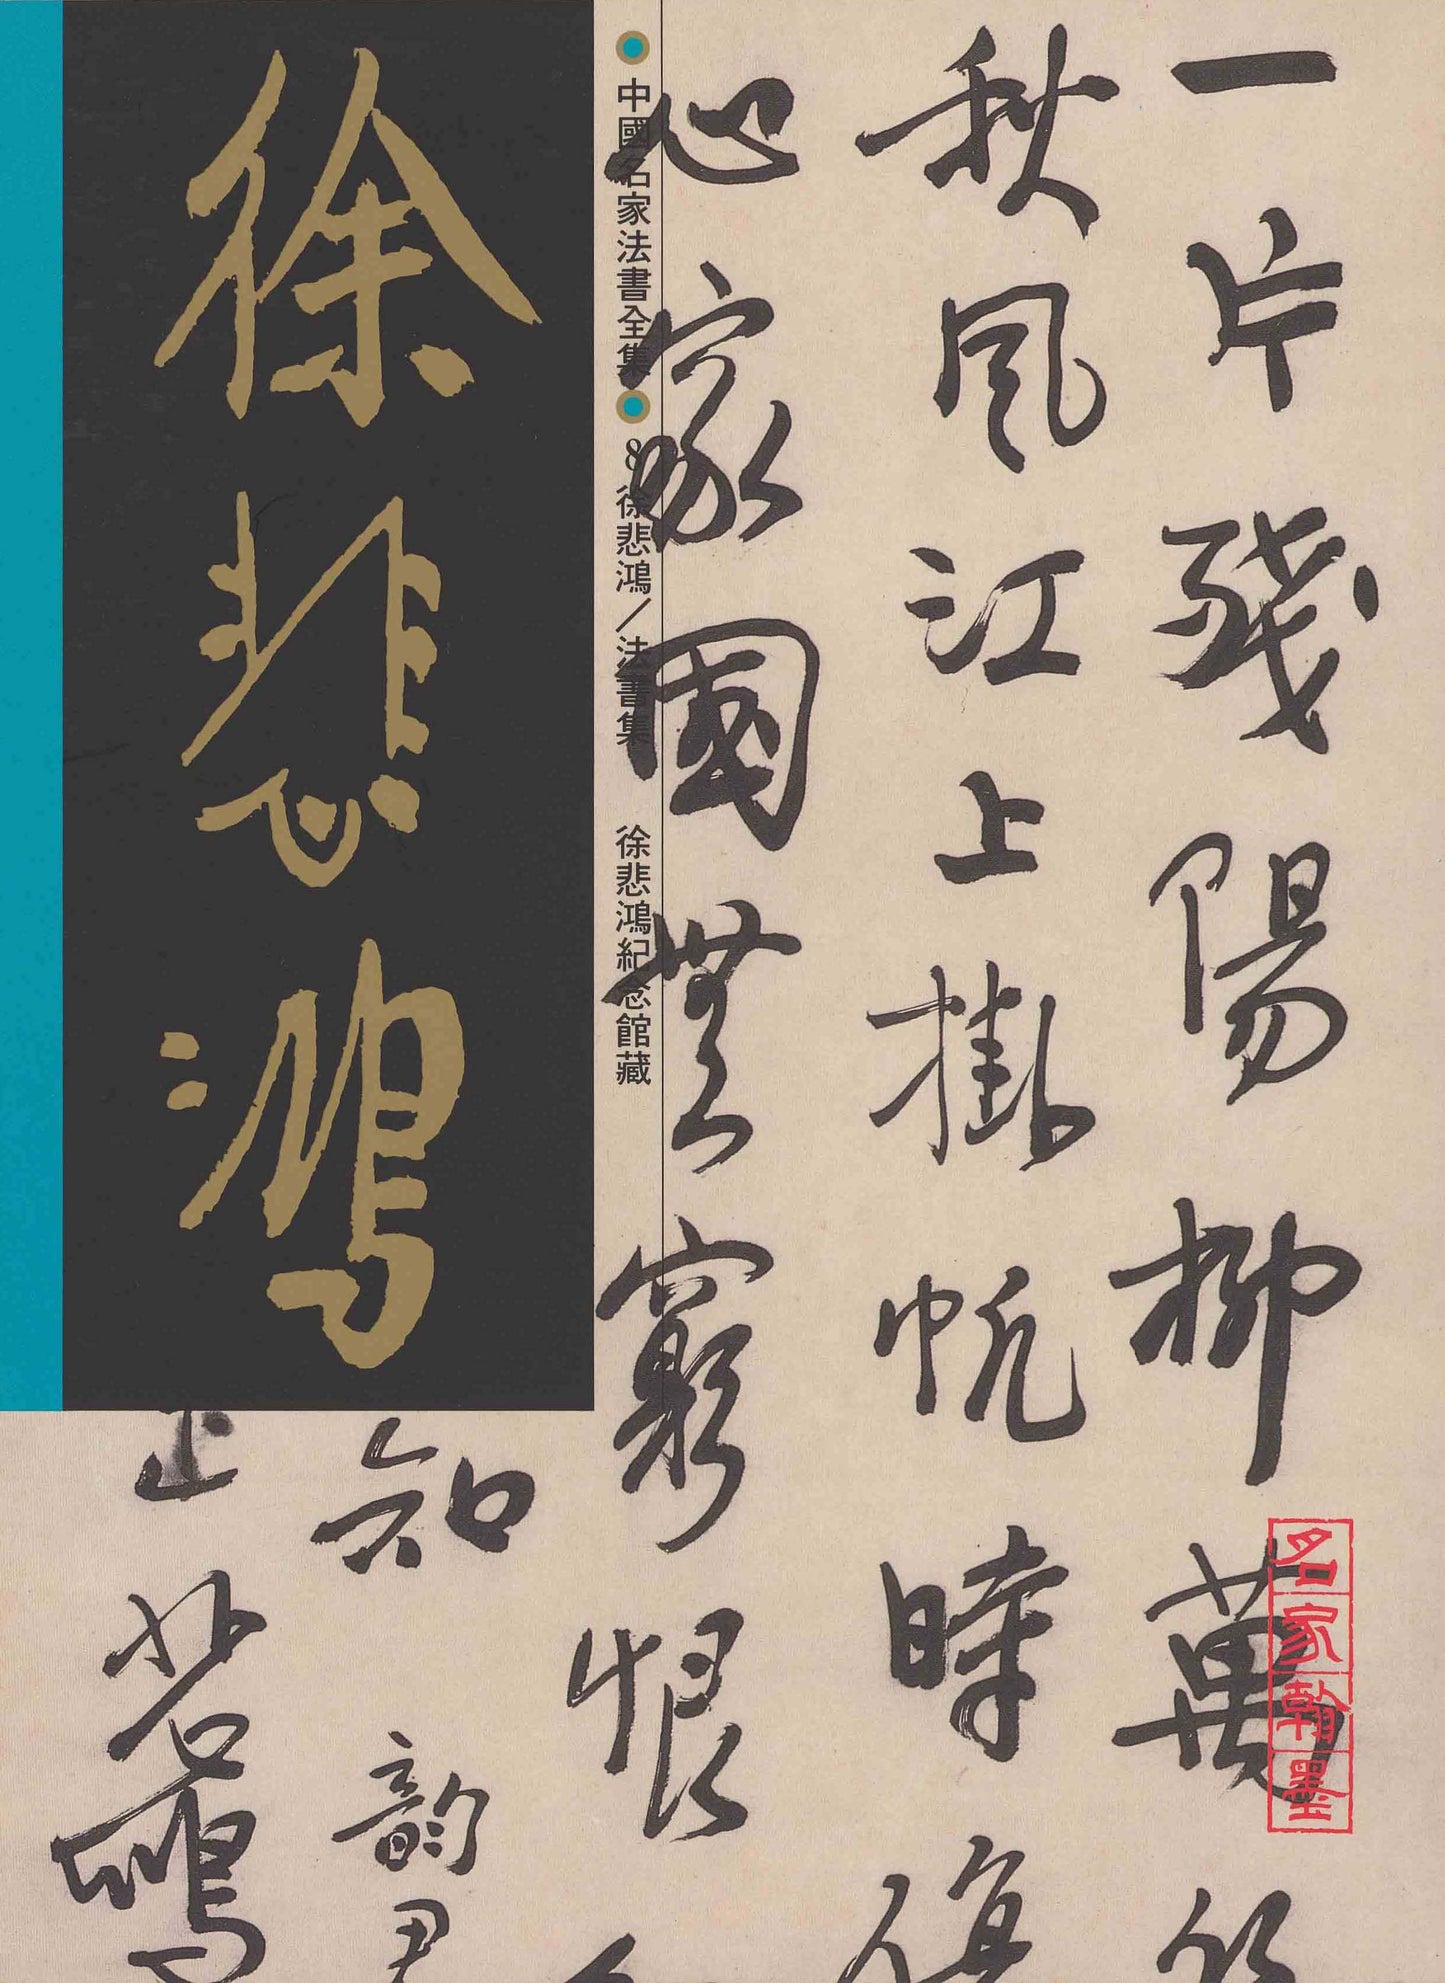 徐悲鴻
中國名家法書全集
8 徐悲鴻/法書集 徐悲鴻紀念館藏
一片殘陽柳萬
秋風江上掛帆時
心家國無窮恨
知 韵君
悲鴻
名家翰墨